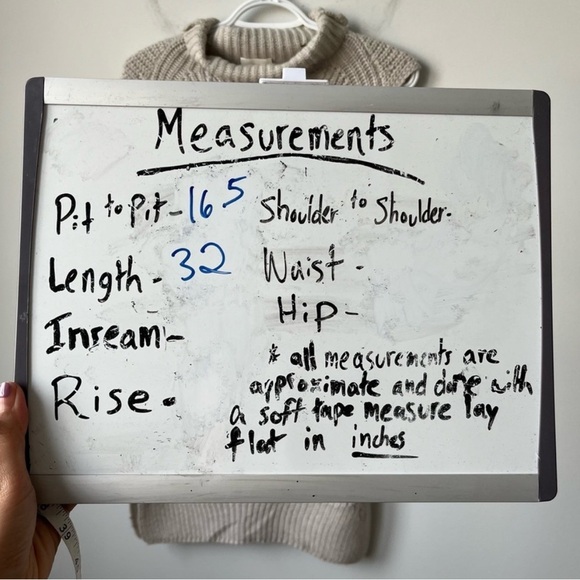 Measurements
Pit to Pit - 16 5
Shoulder to Shoulder -
Length - 32
Waist -
Inseam -
Hip -
Rise -
* all measurements are
approximate and done with
a soft tape measure lay
flat in inches
39